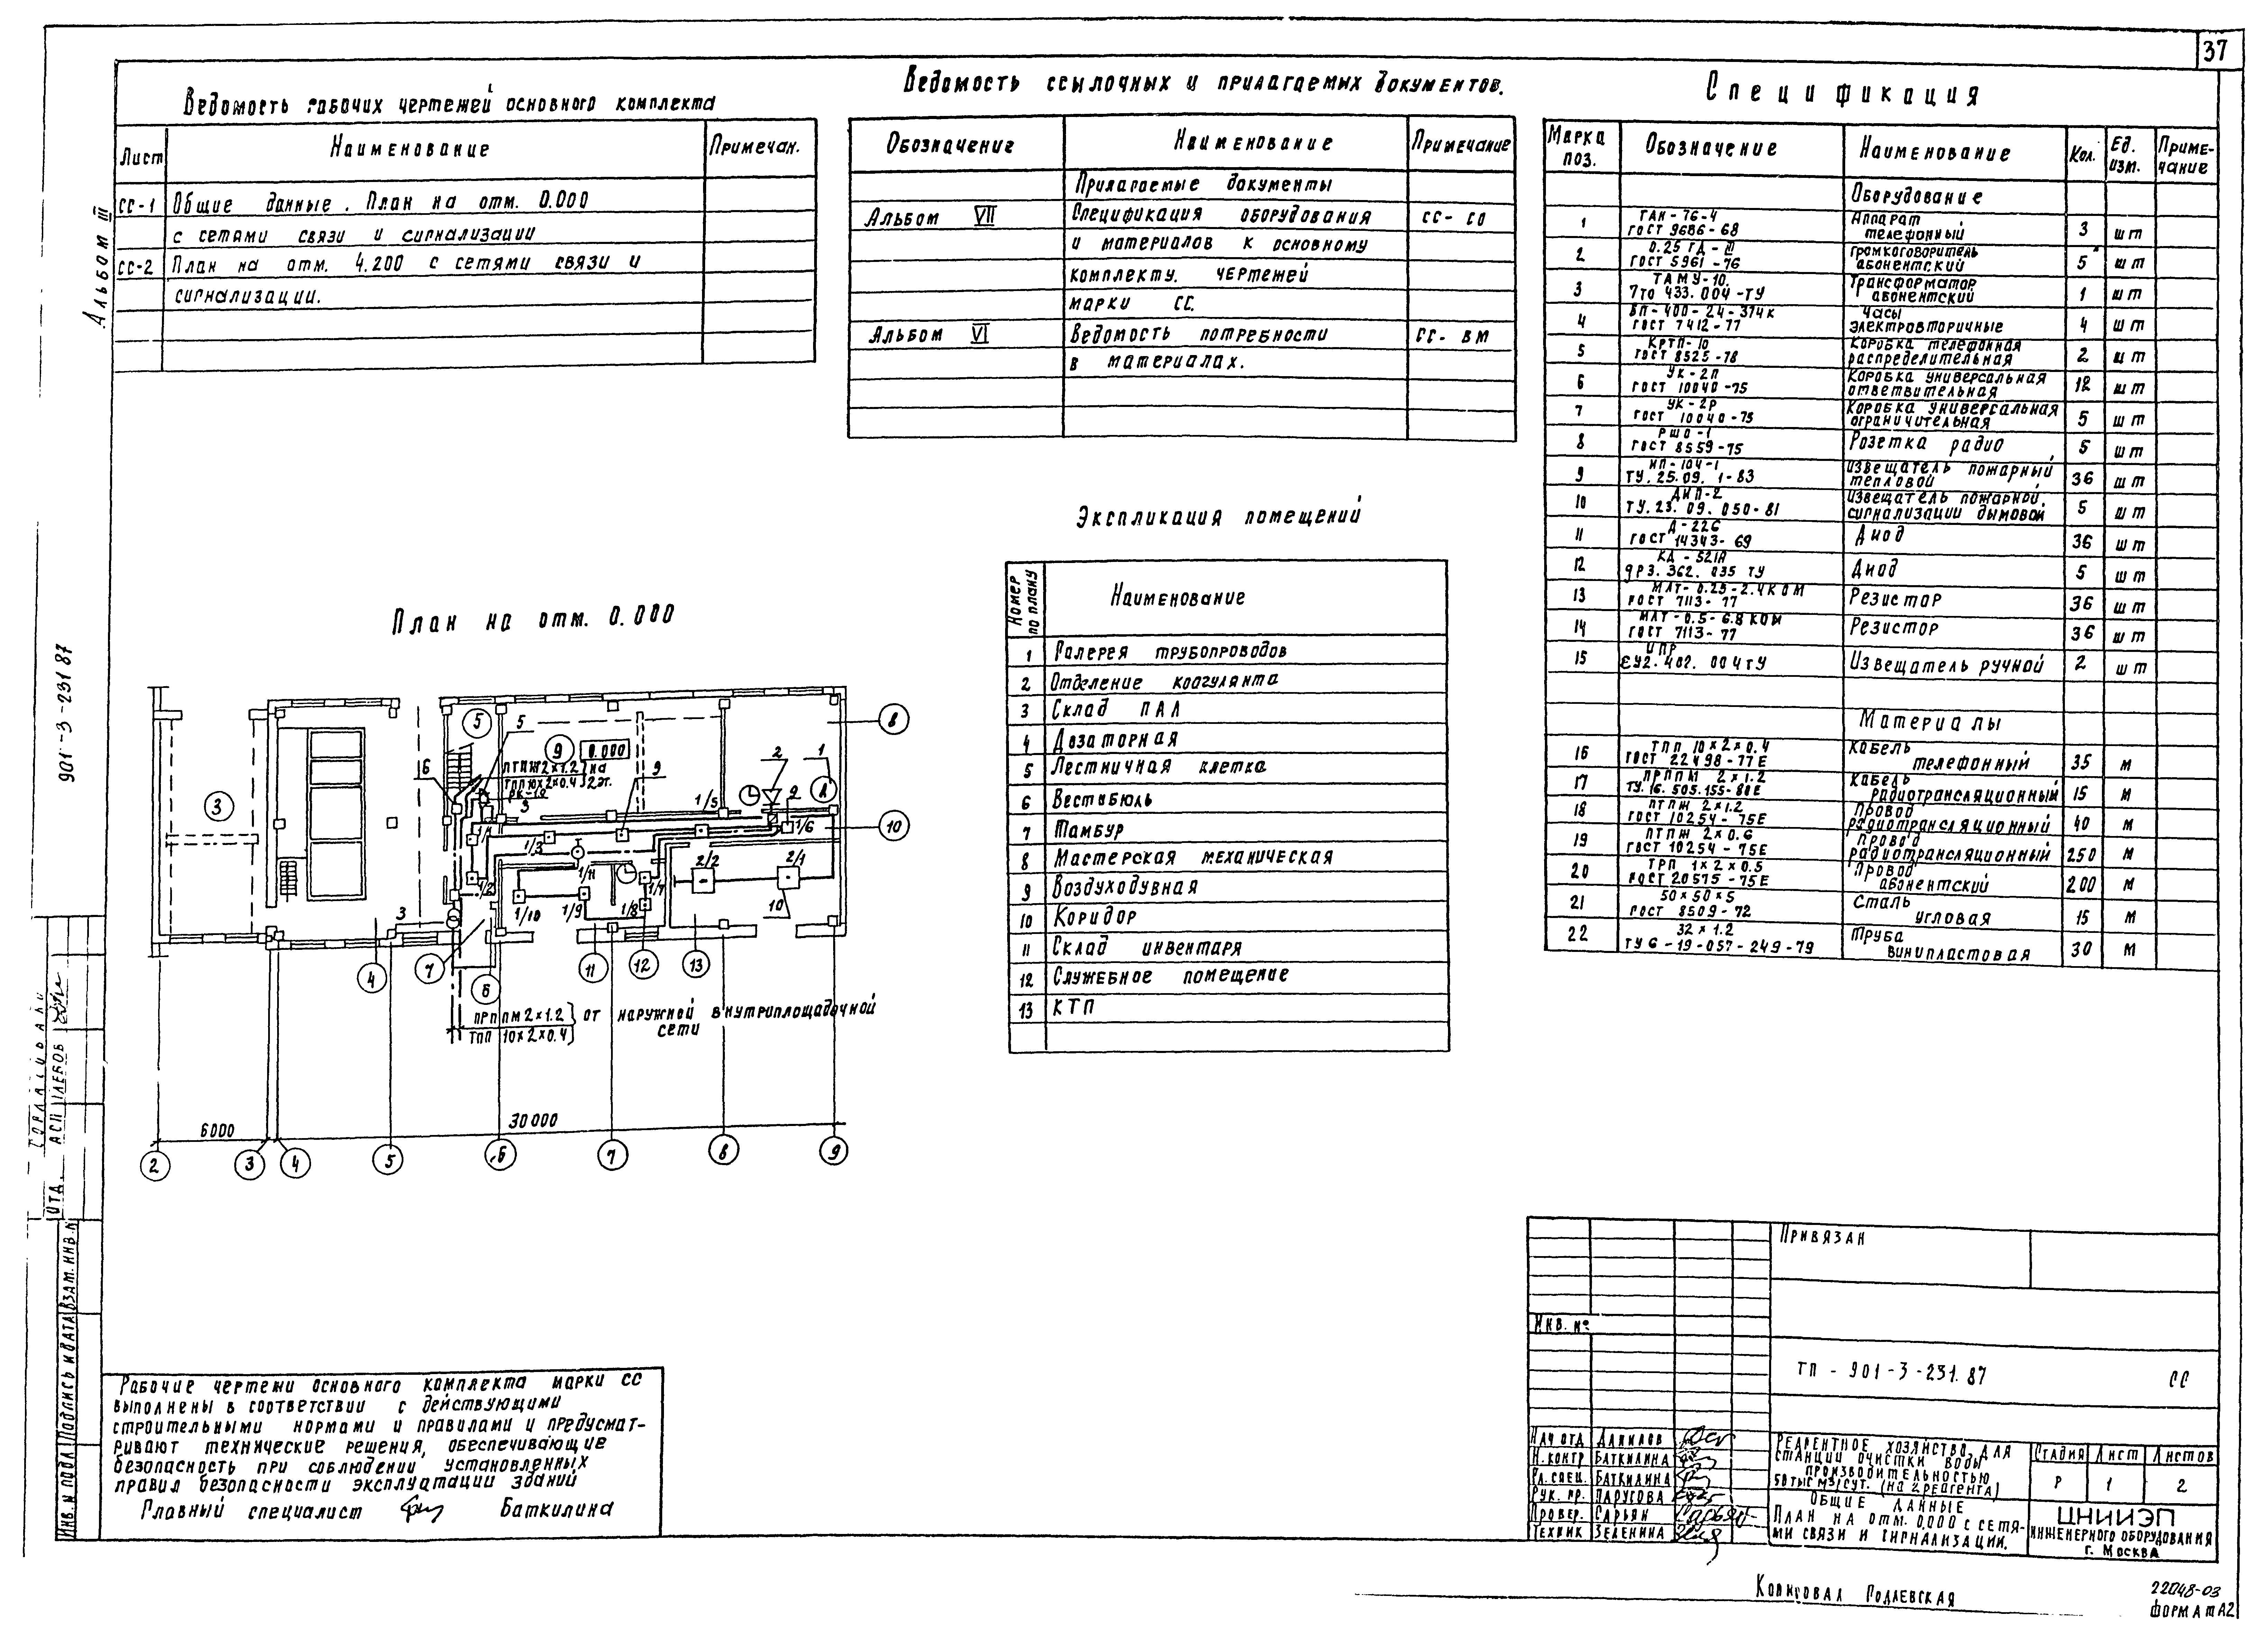 37
Ведомость рабочих чертежей основного комплекта
Лист Наименование Примечан.
СС-1 Общие данные. План на отм. 0.000
с сетями связи и сигнализации
СС-2 План на отм. 4.200 с сетями связи и
сигнализации.
Ведомость ссылочных и прилагаемых документов.
Обозначение Наименование Примечание
Прилагаемые документы
Альбом VII Спецификация оборудования СС-СО
и материалов к основному
комплекту. чертежей
марки СС.
Альбом VI Ведомость потребности СС-ВМ
в материалах.
Спецификация
Марка поз. Обозначение Наименование Кол. Ед. изм. Примечание
Оборудование
1 ТАН-76-4 ГОСТ 9686-68 Аппарат телефонный 3 шт
2 0.25 ГД-III ГОСТ 5961-76 Громкоговоритель абонентский 5 шт
3 ТАМУ-10. 7то 433.004-ТУ Трансформатор абонентский 1 шт
4 ВП-400-24-374к ГОСТ 7412-77 Часы электровторичные 4 шт
5 КРТП-10 ГОСТ 8525-78 Коробка телефонная распределительная 2 шт
6 УК-2П ГОСТ 10040-75 Коробка универсальная ответвительная 12 шт
7 УК-2Р ГОСТ 10040-75 Коробка универсальная ограничительная 5 шт
8 РШО-1 ГОСТ 8559-75 Розетка радио 5 шт
9 ИП-104-1 ТУ.25.09.1-83 Извещатель пожарный тепловой 36 шт
10 ДИП-2 ТУ.23.09.050-81 Извещатель пожарной сигнализации дымовой 5 шт
11 Д-226 ГОСТ 14343-69 Диод 36 шт
12 КД-521А дР3.362.035 ТУ Диод 5 шт
13 МЛТ-0.25-2.4КОМ ГОСТ 7113-77 Резистор 36 шт
14 МЛТ-0.5-6.8КОМ ГОСТ 7113-77 Резистор 36 шт
15 ИПР ЕУ2.402.004ТУ Извещатель ручной 2 шт
Материалы
16 ТПП 10×2×0.4 ГОСТ 22498-77Е Кабель телефонный 35 м
17 ПРППМ 2×1.2 ТУ.16.505.155-80Е Кабель радиотрансляционный 15 м
18 ПТПЖ 2×1.2 ГОСТ 10254-75Е Провод радиотрансляционный 40 м
19 ПТПЖ 2×0.6 ГОСТ 10254-75Е Провод радиотрансляционный 250 м
20 ТРП 1×2×0.5 ГОСТ 20575-75Е Провод абонентский 200 м
21 50×50×5 ГОСТ 8509-72 Сталь угловая 15 м
22 32×1.2 ТУ6-19-057-249-79 Труба винипластовая 30 м
Экспликация помещений
Номер по плану Наименование
1 Галерея трубопроводов
2 Отделение коагулянта
3 Склад ПАА
4 Дозаторная
5 Лестничная клетка
6 Вестибюль
7 Тамбур
8 Мастерская механическая
9 Воздуходувная
10 Коридор
11 Склад инвентаря
12 Служебное помещение
13 КТП
План на отм. 0.000
5 5 8
9 0.000
6 ПТПЖ2×1.2 на 9 2 1
ТПП10×2×0.4 2эт.
3 3 1/5 9 А
1/1 1/3 1/6 10
1/2 1/11 2/2 2/1
1/10 1/9 1/8 1/7 10
3
4 7 6 11 12 13
ПРППМ2×1.2 от наружной внутриплощадочной
ТПП 10×2×0.4 сети
6000 30000
2 3 4 5 6 7 8 9
Рабочие чертежи основного комплекта марки СС
выполнены в соответствии с действующими
строительными нормами и правилами и предусмат-
ривают технические решения, обеспечивающие
безопасность при соблюдении установленных
правил безопасности эксплуатации зданий
Главный специалист Баткилина
Альбом III
901-3-231 87
Согласовано
Отд.
Инв. N подл Подпись и дата Взам. инв. N
Привязан
Инв. №
ТП-901-3-231.87 СС
Нач отд Данилов
Н.контр Баткилина
Гл.спец. Баткилина
Рук. гр. Парусова
Провер. Сарьян
Техник Зеленина
Реагентное хозяйство для
станции очистки воды
производительностью
50 тыс м3/сут. (на 2 реагента)
Стадия Лист Листов
Р 1 2
Общие данные
План на отм. 0.000 с сетя-
ми связи и сигнализации.
ЦНИИЭП
инженерного оборудования
г. Москва
Копировал Подлевская
22048-03
Формат А2